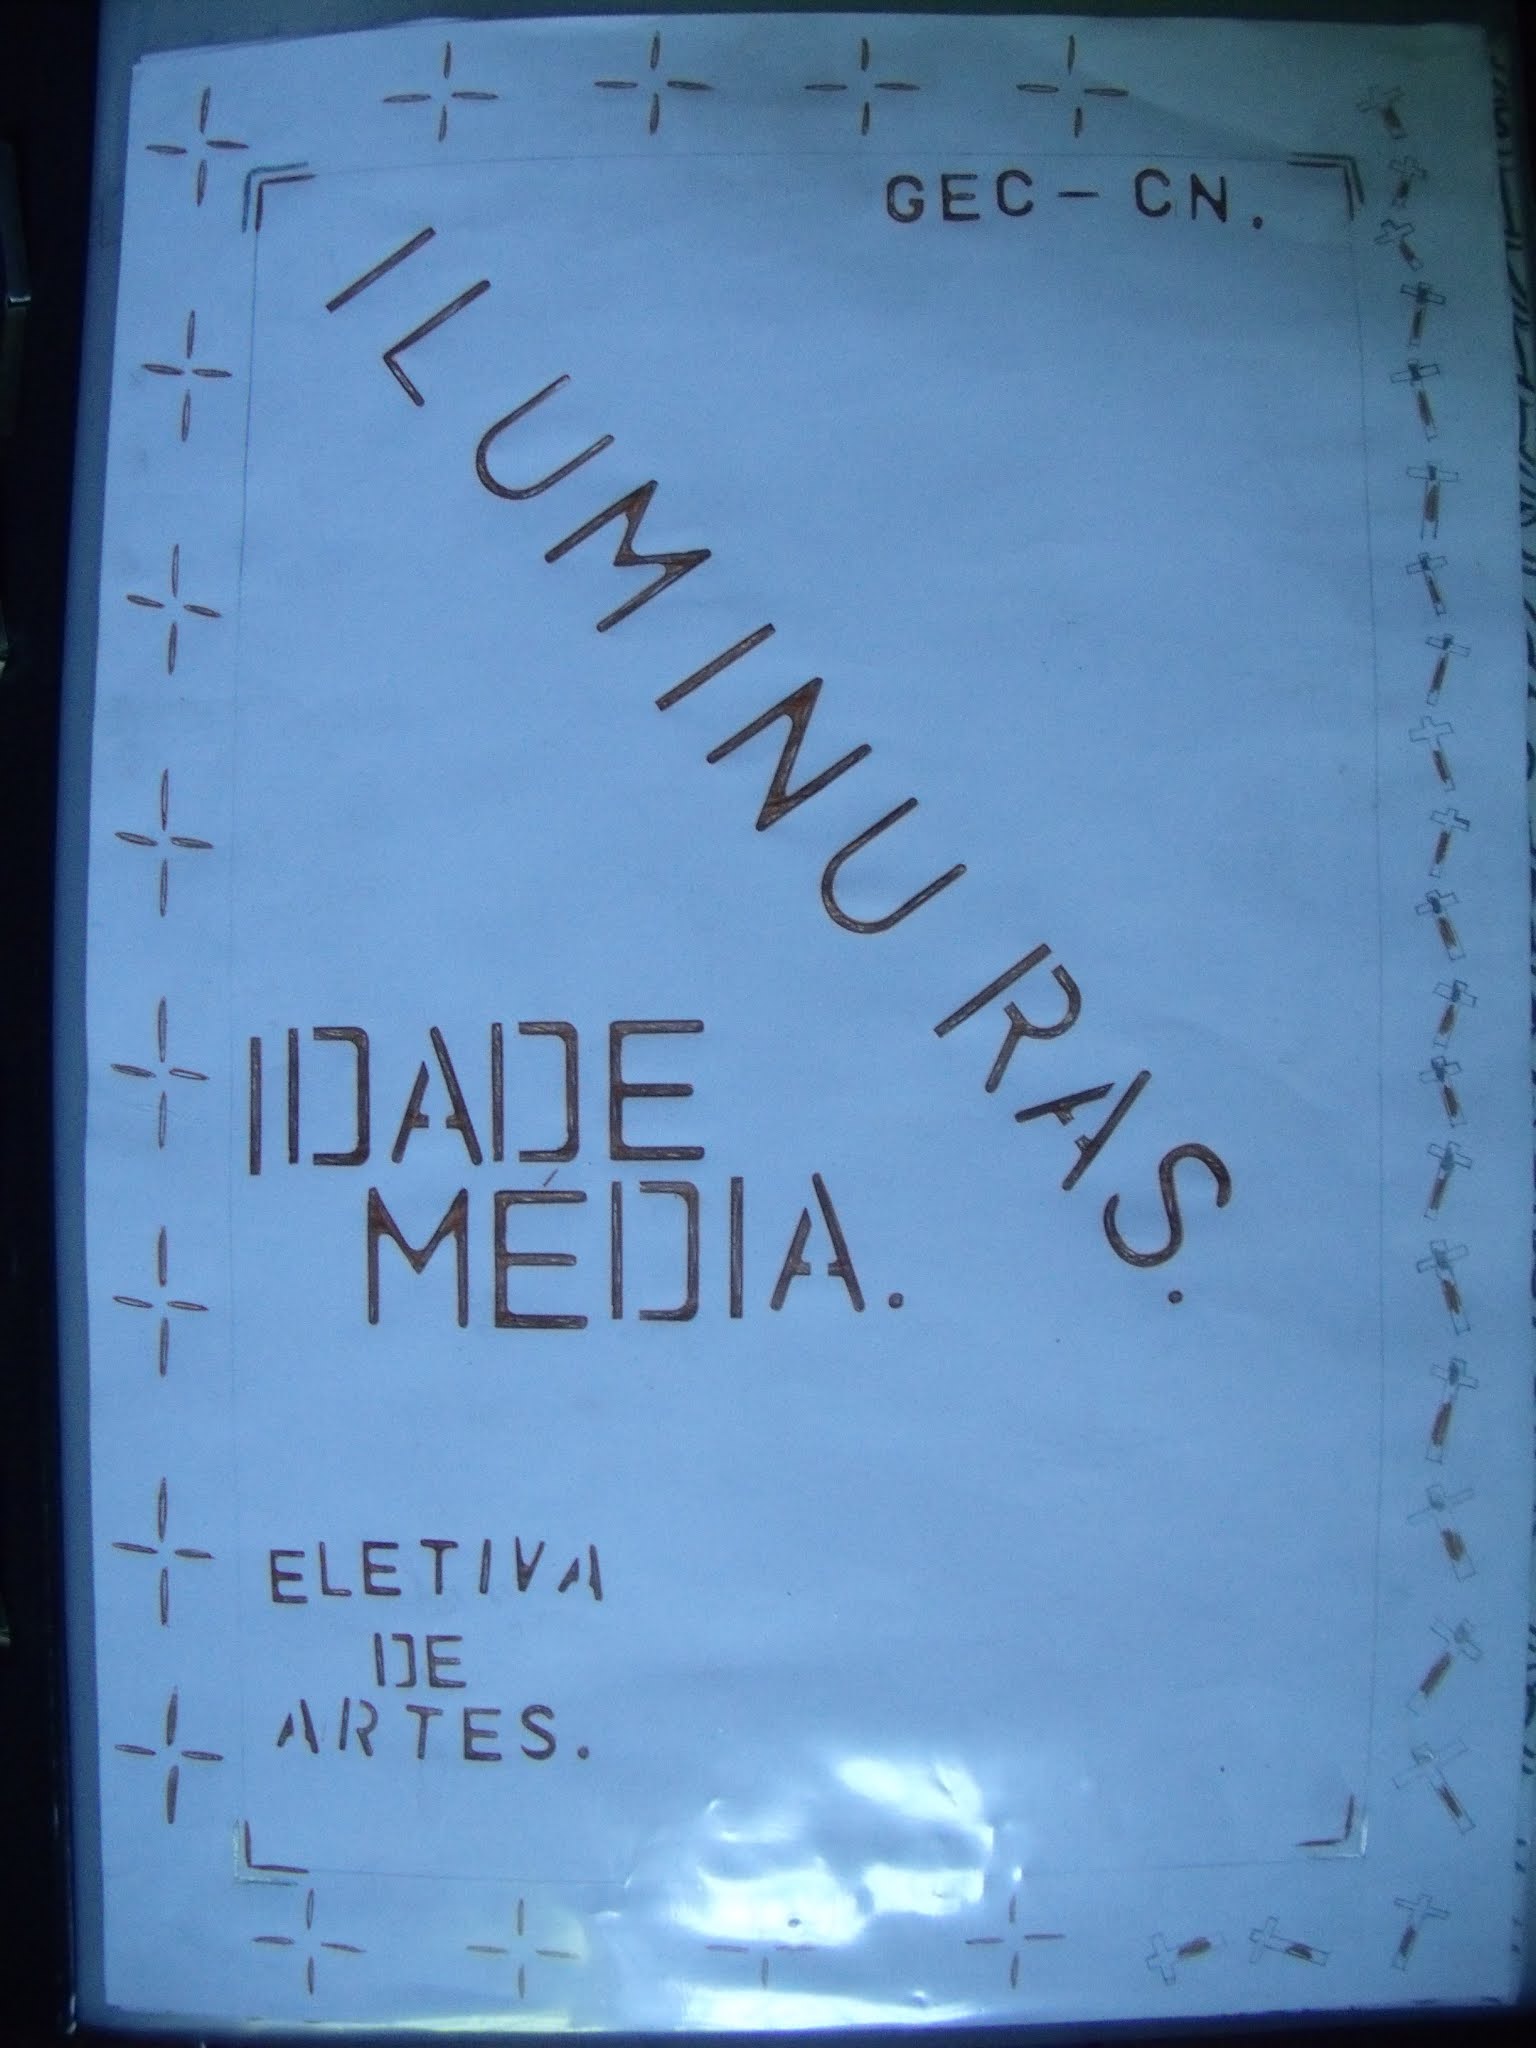 GEC - CN.
ILUMINURAS.
IDADE
MÉDIA.
ELETIVA
DE
ARTES.